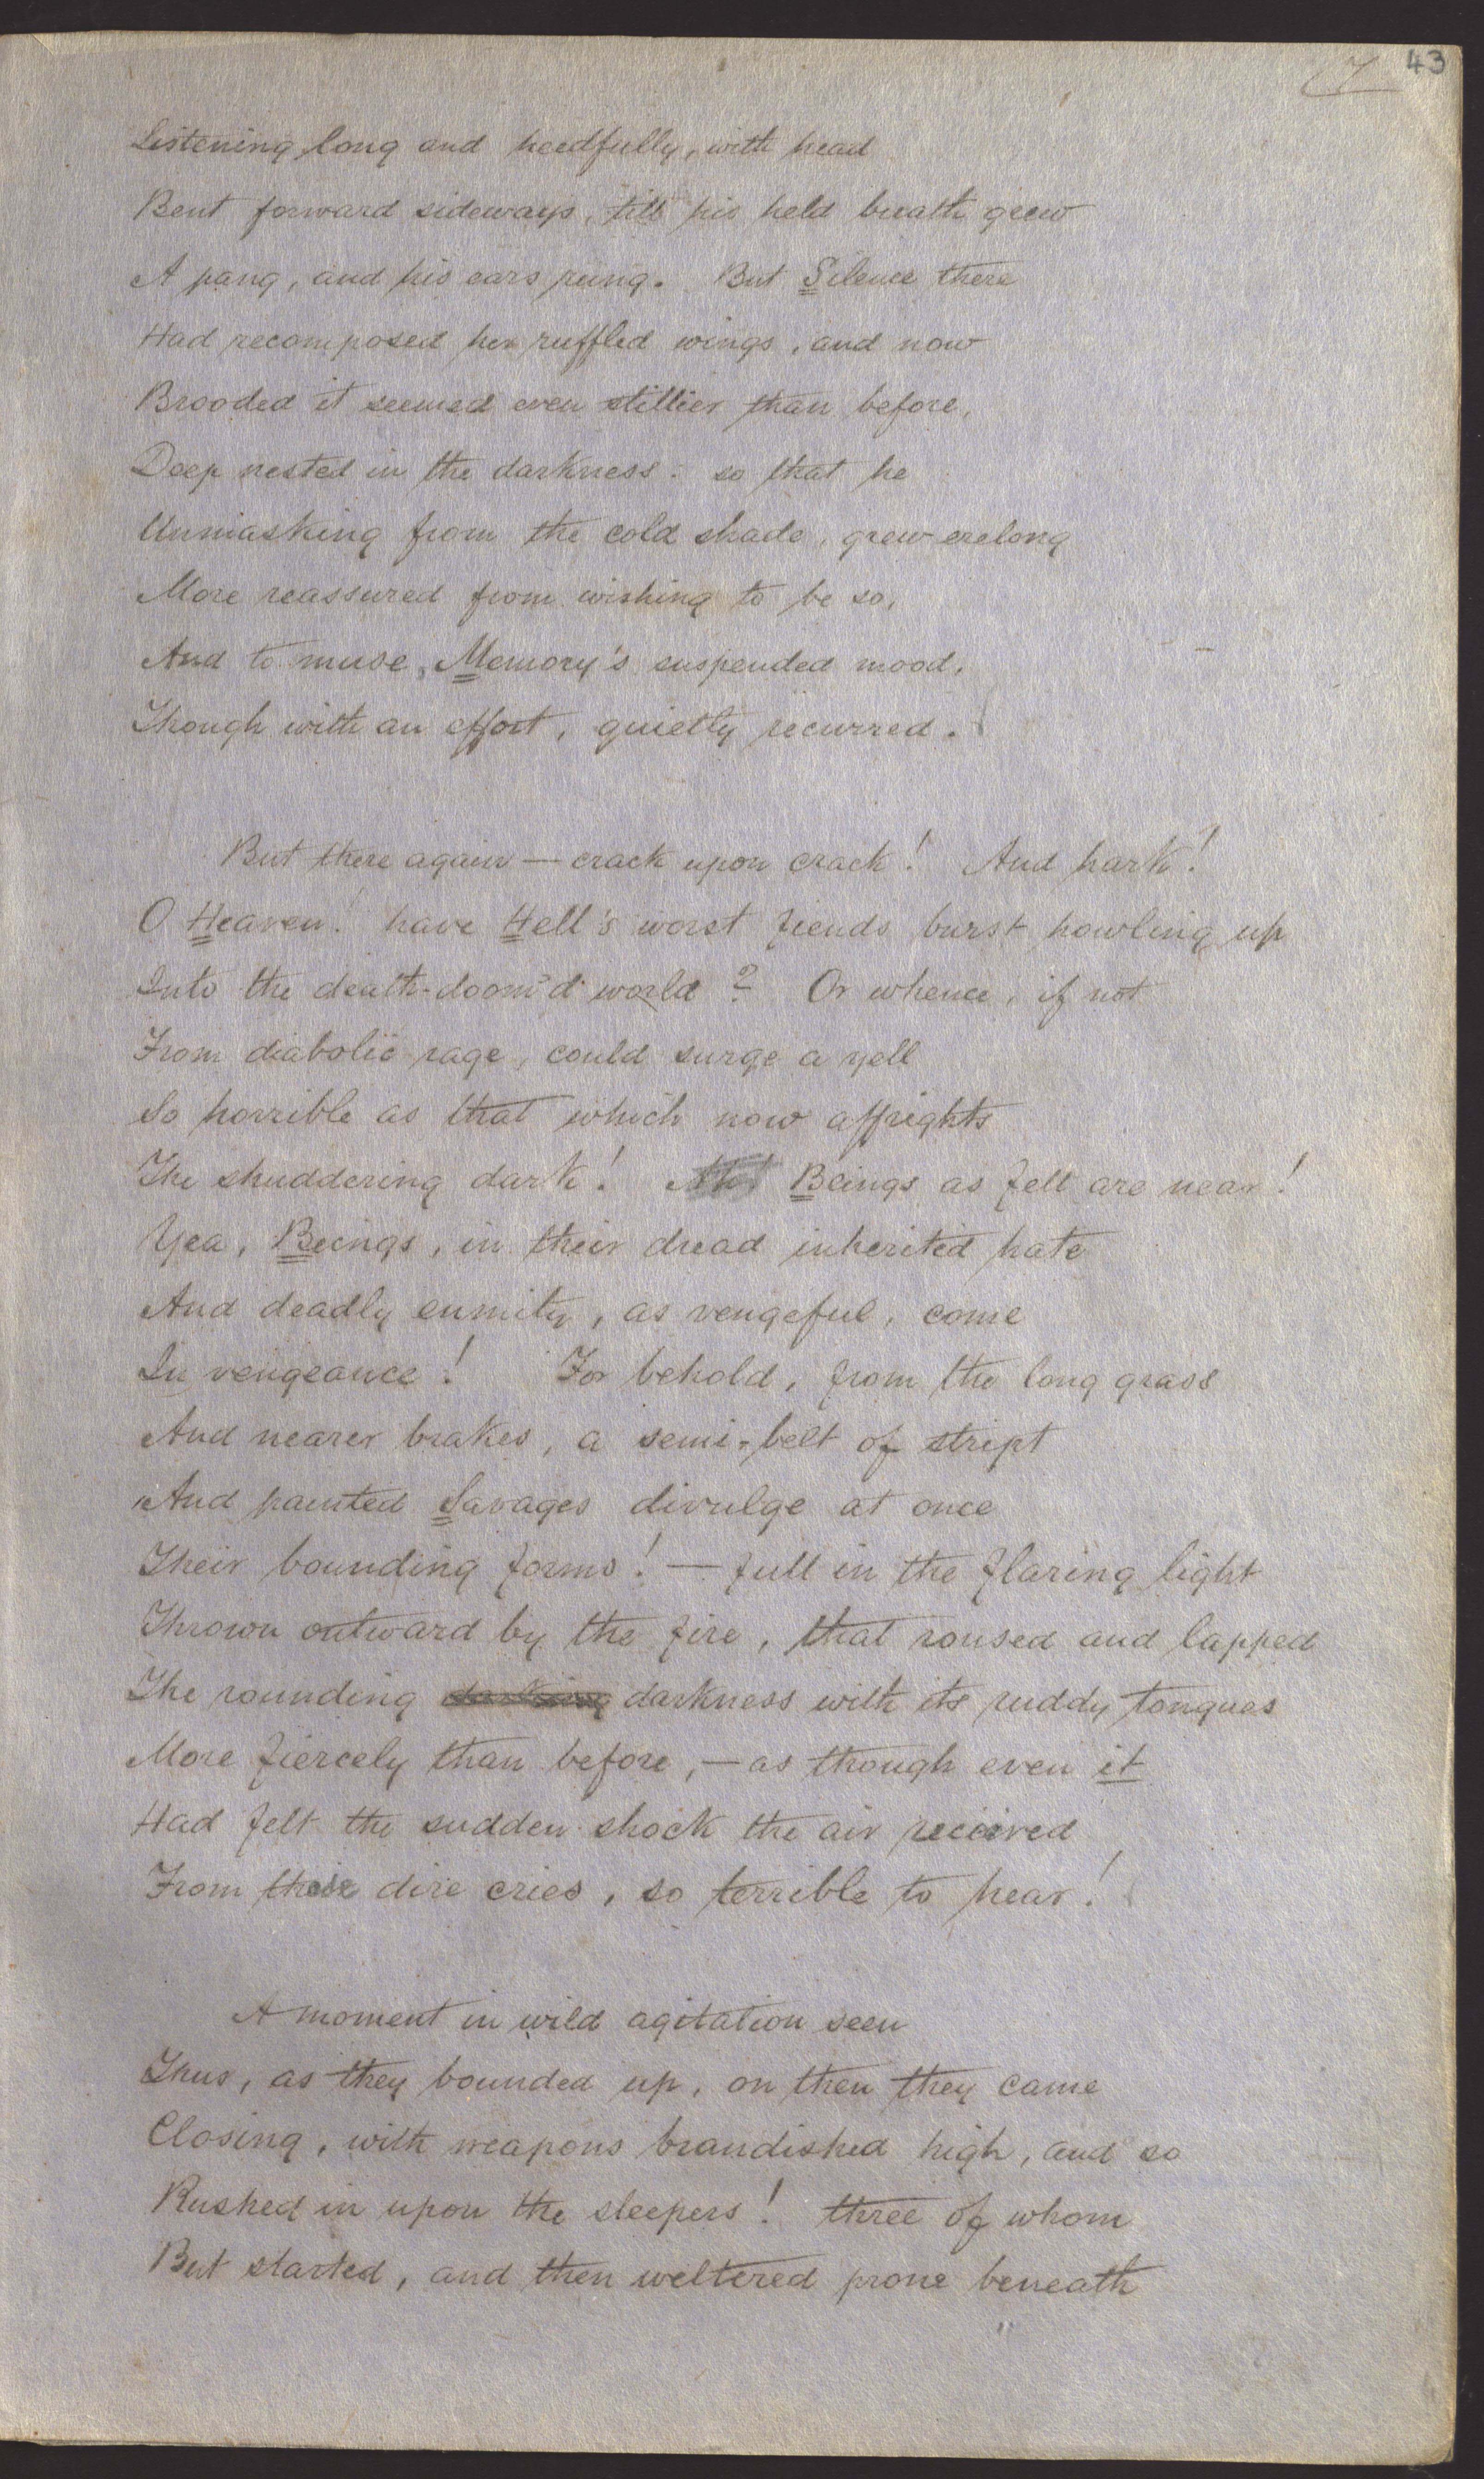 7 43
Listening long and heedfully, with head
Bent forward sideways, till his held breath grew
A pang, and his ears rung. But Silence there
Had recomposed her ruffled wings, and now
Brooded it seemed even stillier than before,
Deep nested in the darkness: so that he
Unmasking from the cold shade, grew erelong
More reassured from wishing to be so,
And to muse, Memory's suspended mood,
Though with an effort, quietly recurred.
But there again — crack upon crack! And hark!
O Heaven! have Hell's worst fiends burst howling up
Into the death-doom'd world? Or whence, if not
From diabolic rage, could surge a yell
So horrible as that which now affrights
The shuddering dark! Beings as fell are near!
Yea, Beings, in their dread inherited hate
And deadly enmity, as vengeful, come
In vengeance! For behold, from the long grass
And nearer brakes, a semi-belt of stript
And painted Savages divulge at once
Their bounding forms! — full in the flaring light
Thrown outward by the fire, that roused and lapped
The rounding darkness with its ruddy tongues
More fiercely than before, — as though even it
Had felt the sudden shock the air received
From those dire cries, so terrible to hear!
A moment in wild agitation seen
Thus, as they bounded up, on then they came
Closing, with weapons brandished high, and so
Rushed in upon the sleepers! three of whom
But started, and then weltered prone beneath